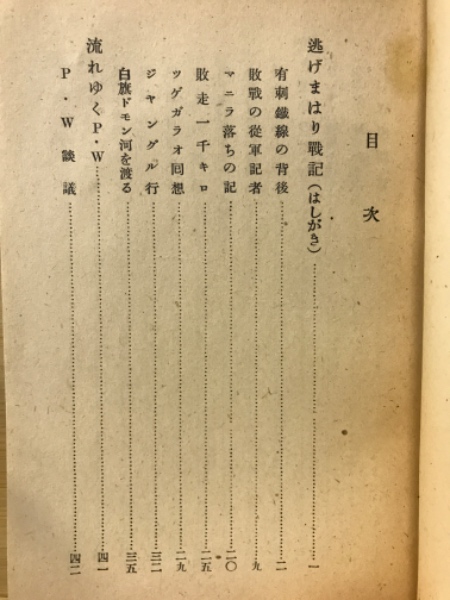 目次
逃げまはり戰記(はしがき)……一
有刺鐵線の背後……二
敗戰の從軍記者……九
マニラ落ちの記……二〇
敗走一千キロ……二五
ツゲガラオ囘想……二九
ジャングル行……三二
白旗ドモン河を渡る……三五
流れゆくP・W……四一
P・W談議……四二